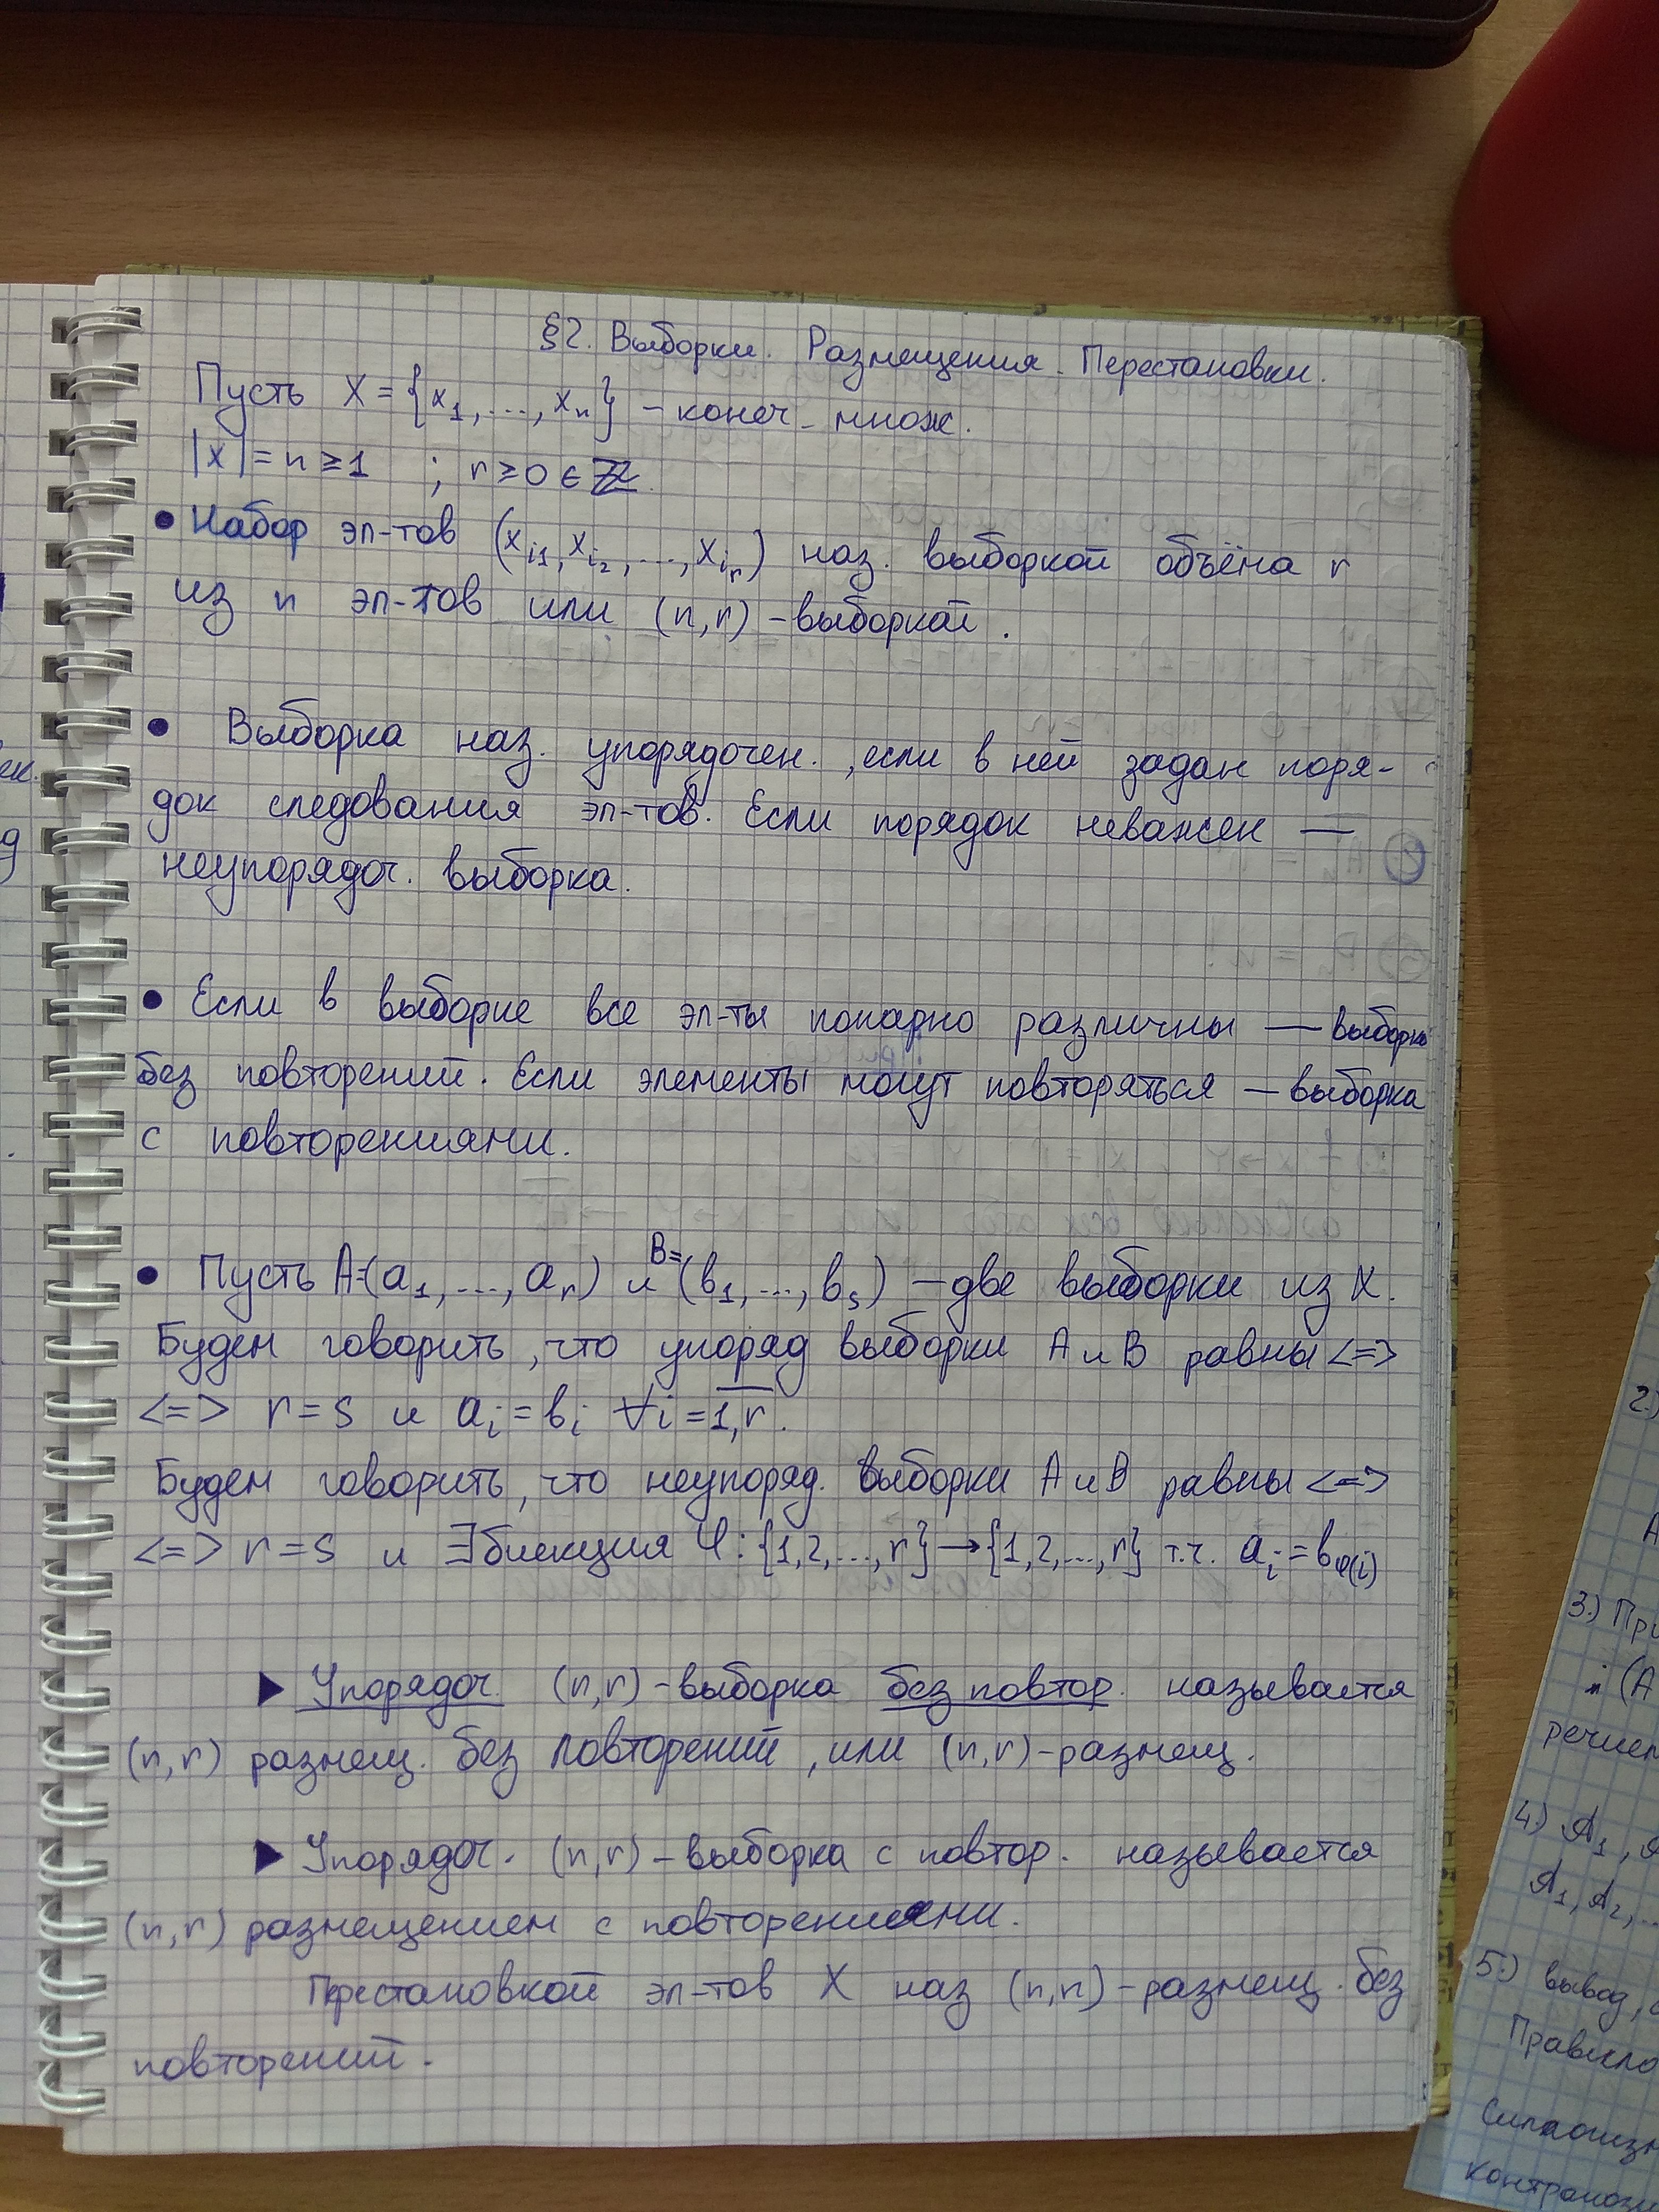 §2. Выборки. Размещения. Перестановки.
Пусть X = {x₁, ..., xₙ} – конеч. множ.
|x| = n ≥ 1 ; r ≥ 0 ∈ ℤ.
• Набор эл-тов (x_{i1}, x_{i2}, ..., x_{ir}) наз. выборкой объёма r
из n эл-тов или (n,r) – выборкой.
• Выборка наз. упорядочен., если в ней задан поря-
док следования эл-тов. Если порядок неважен —
неупорядоч. выборка.
• Если в выборке все эл-ты попарно различны — выборка
без повторений. Если элементы могут повторяться — выборка
с повторениями.
• Пусть A=(a₁, ..., aᵣ) и B=(b₁, ..., bₛ) – две выборки из X.
Будем говорить, что упоряд выборки A и B равны <=>
<=> r = s и aᵢ = bᵢ ∀i = \overline{1,r}.
Будем говорить, что неупоряд. выборки A и B равны <=>
<=> r = s и ∃ биекция φ: {1,2,...,r} → {1,2,...,r} т.ч. aᵢ = b_{φ(i)}
▶ Упорядоч. (n,r) – выборка без повтор. называется
(n,r) размещ. без повторений, или (n,r)-размещ.
▶ Упорядоч. (n,r) – выборка с повтор. называется
(n,r) размещением с повторениями.
Перестановкой эл-тов X наз (n,n) – размещ. без
повторений.
2.)
A
3.) При
(A
4.) A₁, A
A₁, A₂, ...
5.) вывод,
Правило
Силлогизм